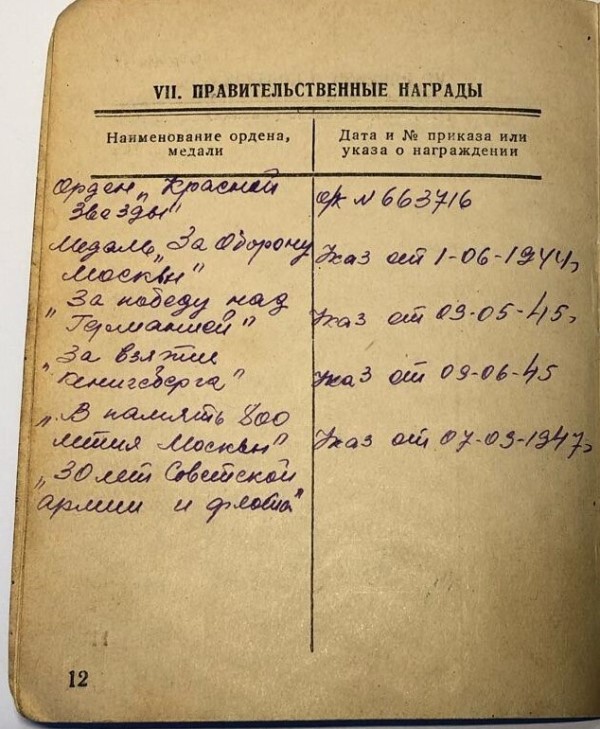 VII. ПРАВИТЕЛЬСТВЕННЫЕ НАГРАДЫ
Наименование ордена,
медали
Дата и № приказа или
указа о награждении
Орден „Красной
Звезды"
о/к N 663716
Медаль „За Оборону
Москвы"
Указ от 1-06-1944г
„За победу над
Германией"
Указ от 09-05-45г
„За взятие
Кенигсберга"
Указ от 09-06-45
„В память 800
летия Москвы"
Указ от 07-09-1947г
„30 лет Советской
армии и флота"
12